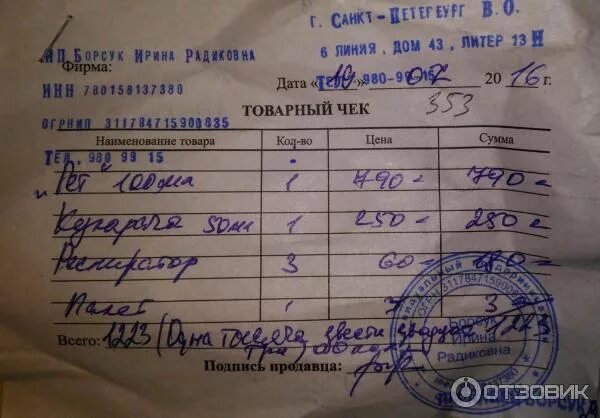 г. Санкт-Петербург В.О.
6 линия, дом 43, литер 13 Н
ИП Борсук Ирина Радиковна
Фирма:
Тел. 980-99 15
Дата «19» 07 2016 г.
ИНН 780158137380
ТОВАРНЫЙ ЧЕК 353
ОГРНИП 311784715900835
Наименование товара Кол-во Цена Сумма
Тел. 980 99 15
"Гет" 100мл 1 790= 790=
Кукарача 50мл 1 250= 250=
Респиратор 3 60= 180=
Пакет 1 3
Всего: 1223 (Одна тысяча двести двадцать три) 1223
Подпись продавца:
Борсук
Ирина
Радиковна
ОТЗОВИК